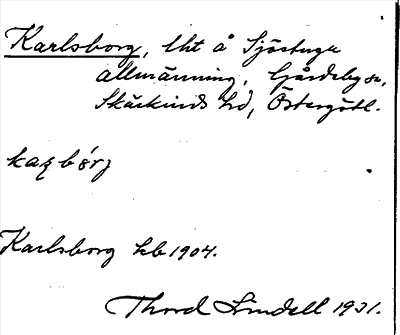 Karlsborg, lht å Sjöstugu
allmänning, Gårdeby sn,
Skärkinds hd, Östergötl.
Karlsborg hb 1904.
Thord Lindell 1931.